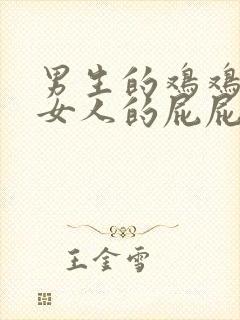 男生的鸡鸡
女人的屁屁
王金雪